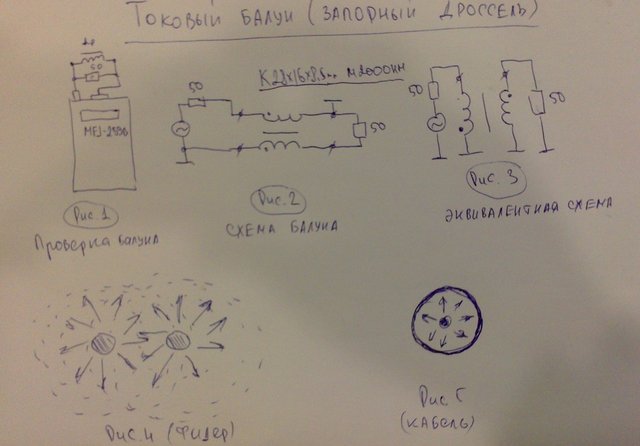 Токовый балун (запорный дроссель)
50
50
К28х16х8.5мм М2000НМ
50
50
50
50
MFJ-259B
Рис 1
Рис. 2
Рис. 3
Проверка балуна
Схема балуна
Эквивалентная схема
Рис. 4 (Фидер)
Рис 5
(Кабель)